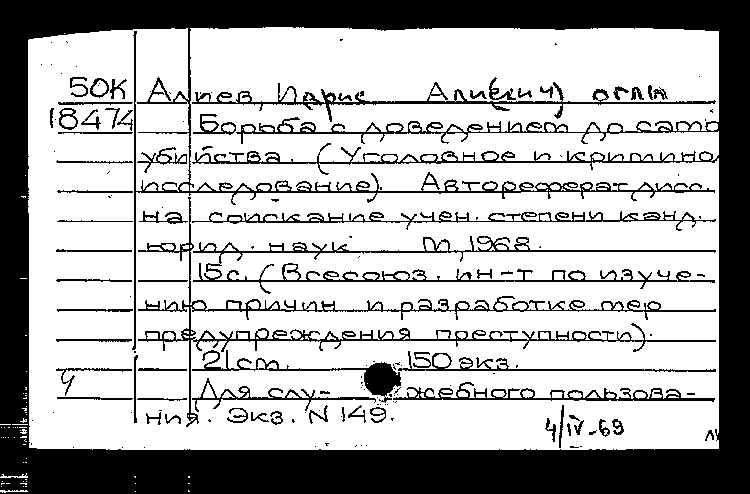 50К Алиев, Идрис Али(евич) оглы
18474 Борьба с доведением до само
убийства. (Уголовное и кримино
исследование). Автореферат дисс.
на соискание учен. степени канд.
юрид. наук М., 1968.
15с. (Всесоюз. ин-т по изуче-
нию причин и разработке мер
предупреждения преступности).
21 см. 150 экз.
Для слу- жебного пользова-
ния. Экз. N 149.
4/IV-69